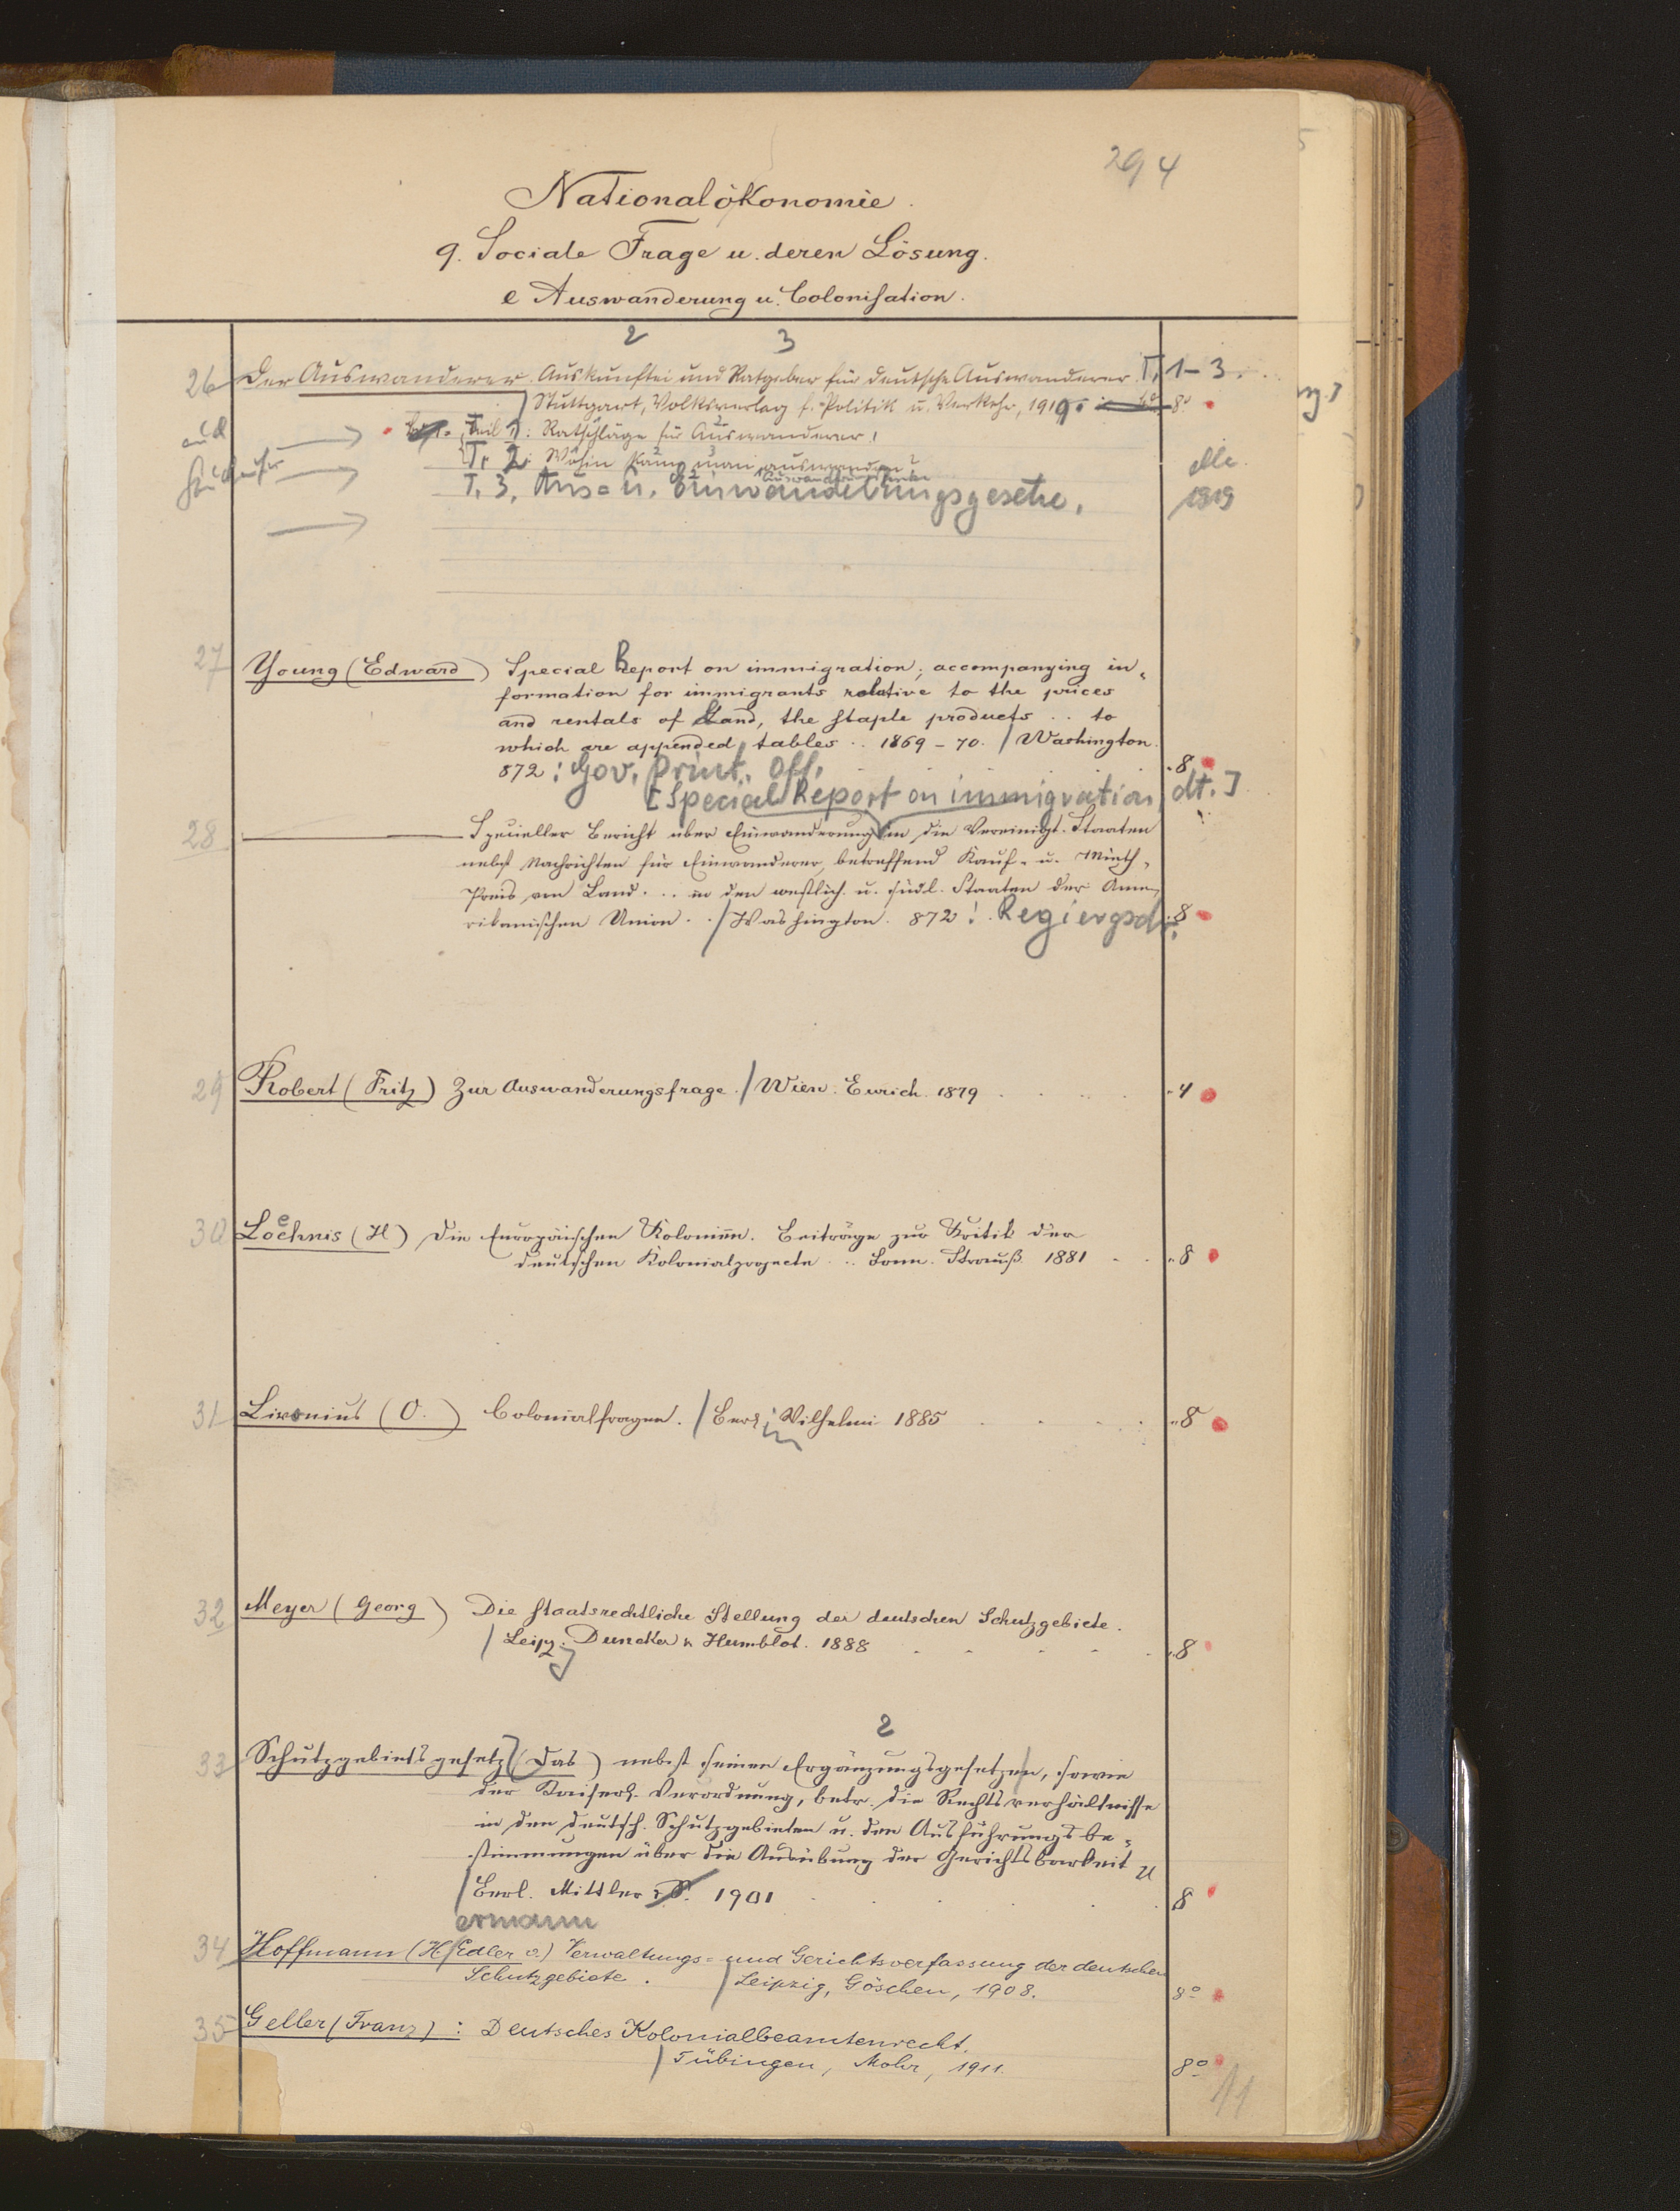 294
Nationalökonomie.
9. Sociale Frage u. deren Lösung.
e Auswanderung u. Colonisation.
2 3
26 Der Auswanderer. Auskunftei und Ratgeber für deutsche Auswanderer. T. 1-3.
/ Stuttgart, Volksverlag f. Politik u. Verkehr, 1919. 8°
Teil 1: Ratschläge für Auswanderer.
T. 2: Wohin kann man auswandern? alle
T. 3. Aus= u. Einwanderungsgesetze. 1919
27 Young (Edward) Special Report on immigration; accompanying in-
formation for immigrants relative to the prices
and rentals of Land, the staple products .. to
which are appended tables .. 1869-70. / Washington.
872: Gov. Print. Off. 8
[Special Report on immigration, dt.]
28 Spezieller Bericht über Einwanderung in die Vereinigt. Staaten
nebst Nachrichten für Einwanderer, betreffend Kauf- u. Mieth-
Preis von Land ... in den westlich. u. südl. Staaten der Ame-
rikanischen Union .. / Washington. 872: Regiergsdr. 8
29 Robert (Fritz) Zur Auswanderungsfrage. / Wien. Eurich. 1879 4
30 Loehnis (H) Die Europäischen Kolonien. Beiträge zur Kritik der
deutschen Kolonialprojecte .. Bonn. Strauß. 1881 8
31 Livonius (O.) Colonialfragen. / Berlin Wilhelmi 1885 8
32 Meyer (Georg) Die staatsrechtliche Stellung der deutschen Schutzgebiete.
/ Leipzg. Duncker & Humblot. 1888 8
2
33 Schutzgebietsgesetz (Das) nebst seinen Ergänzungsgesetzen, sowie
der Kaiserl. Verordnung, betr. die Rechtsverhältnisse
in den deutsch. Schutzgebieten u. den Ausführungsbe-
stimmungen über die Ausübung der Gerichtsbarkeit
/ Berl. Mittler 1901 8
ermann
34 Hoffmann (H. Edler v.) Verwaltungs= und Gerichtsverfassung der deutschen
Schutzgebiete. / Leipzig, Göschen, 1908. 8°
35 Geller (Franz): Deutsches Kolonialbeamtenrecht.
/ Tübingen, Mohr, 1911. 8°
11